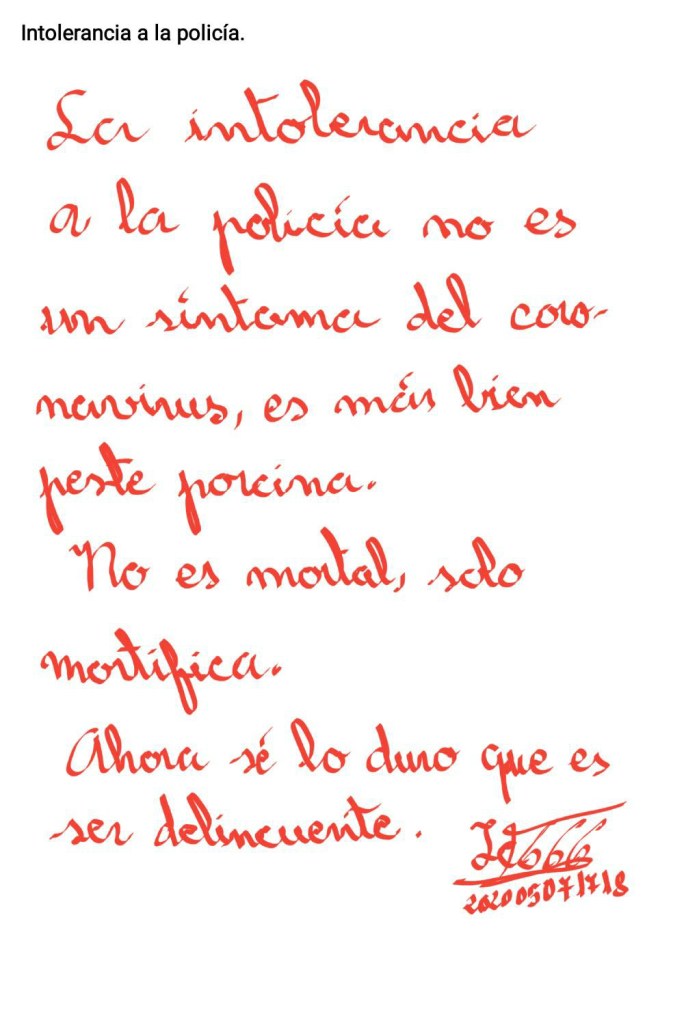 Intolerancia a la policía.
La intolerancia
a la policía no es
un síntoma del coro-
navirus, es más bien
peste porcina.
No es mortal, solo
mortifica.
Ahora sé lo duro que es
ser delincuente.
202005071718